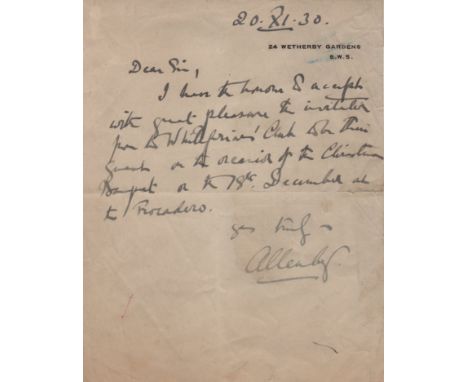 20.XI.30.
24 WETHERBY GARDENS
S.W.5.
Dear Sir,
I have the honour to accept
with great pleasure the invitation
from the Whitefriars' Club to be their
guest on the occasion of the Christmas
Banquet on the 18th. December at
the Trocadero.
yrs truly
Allenby.